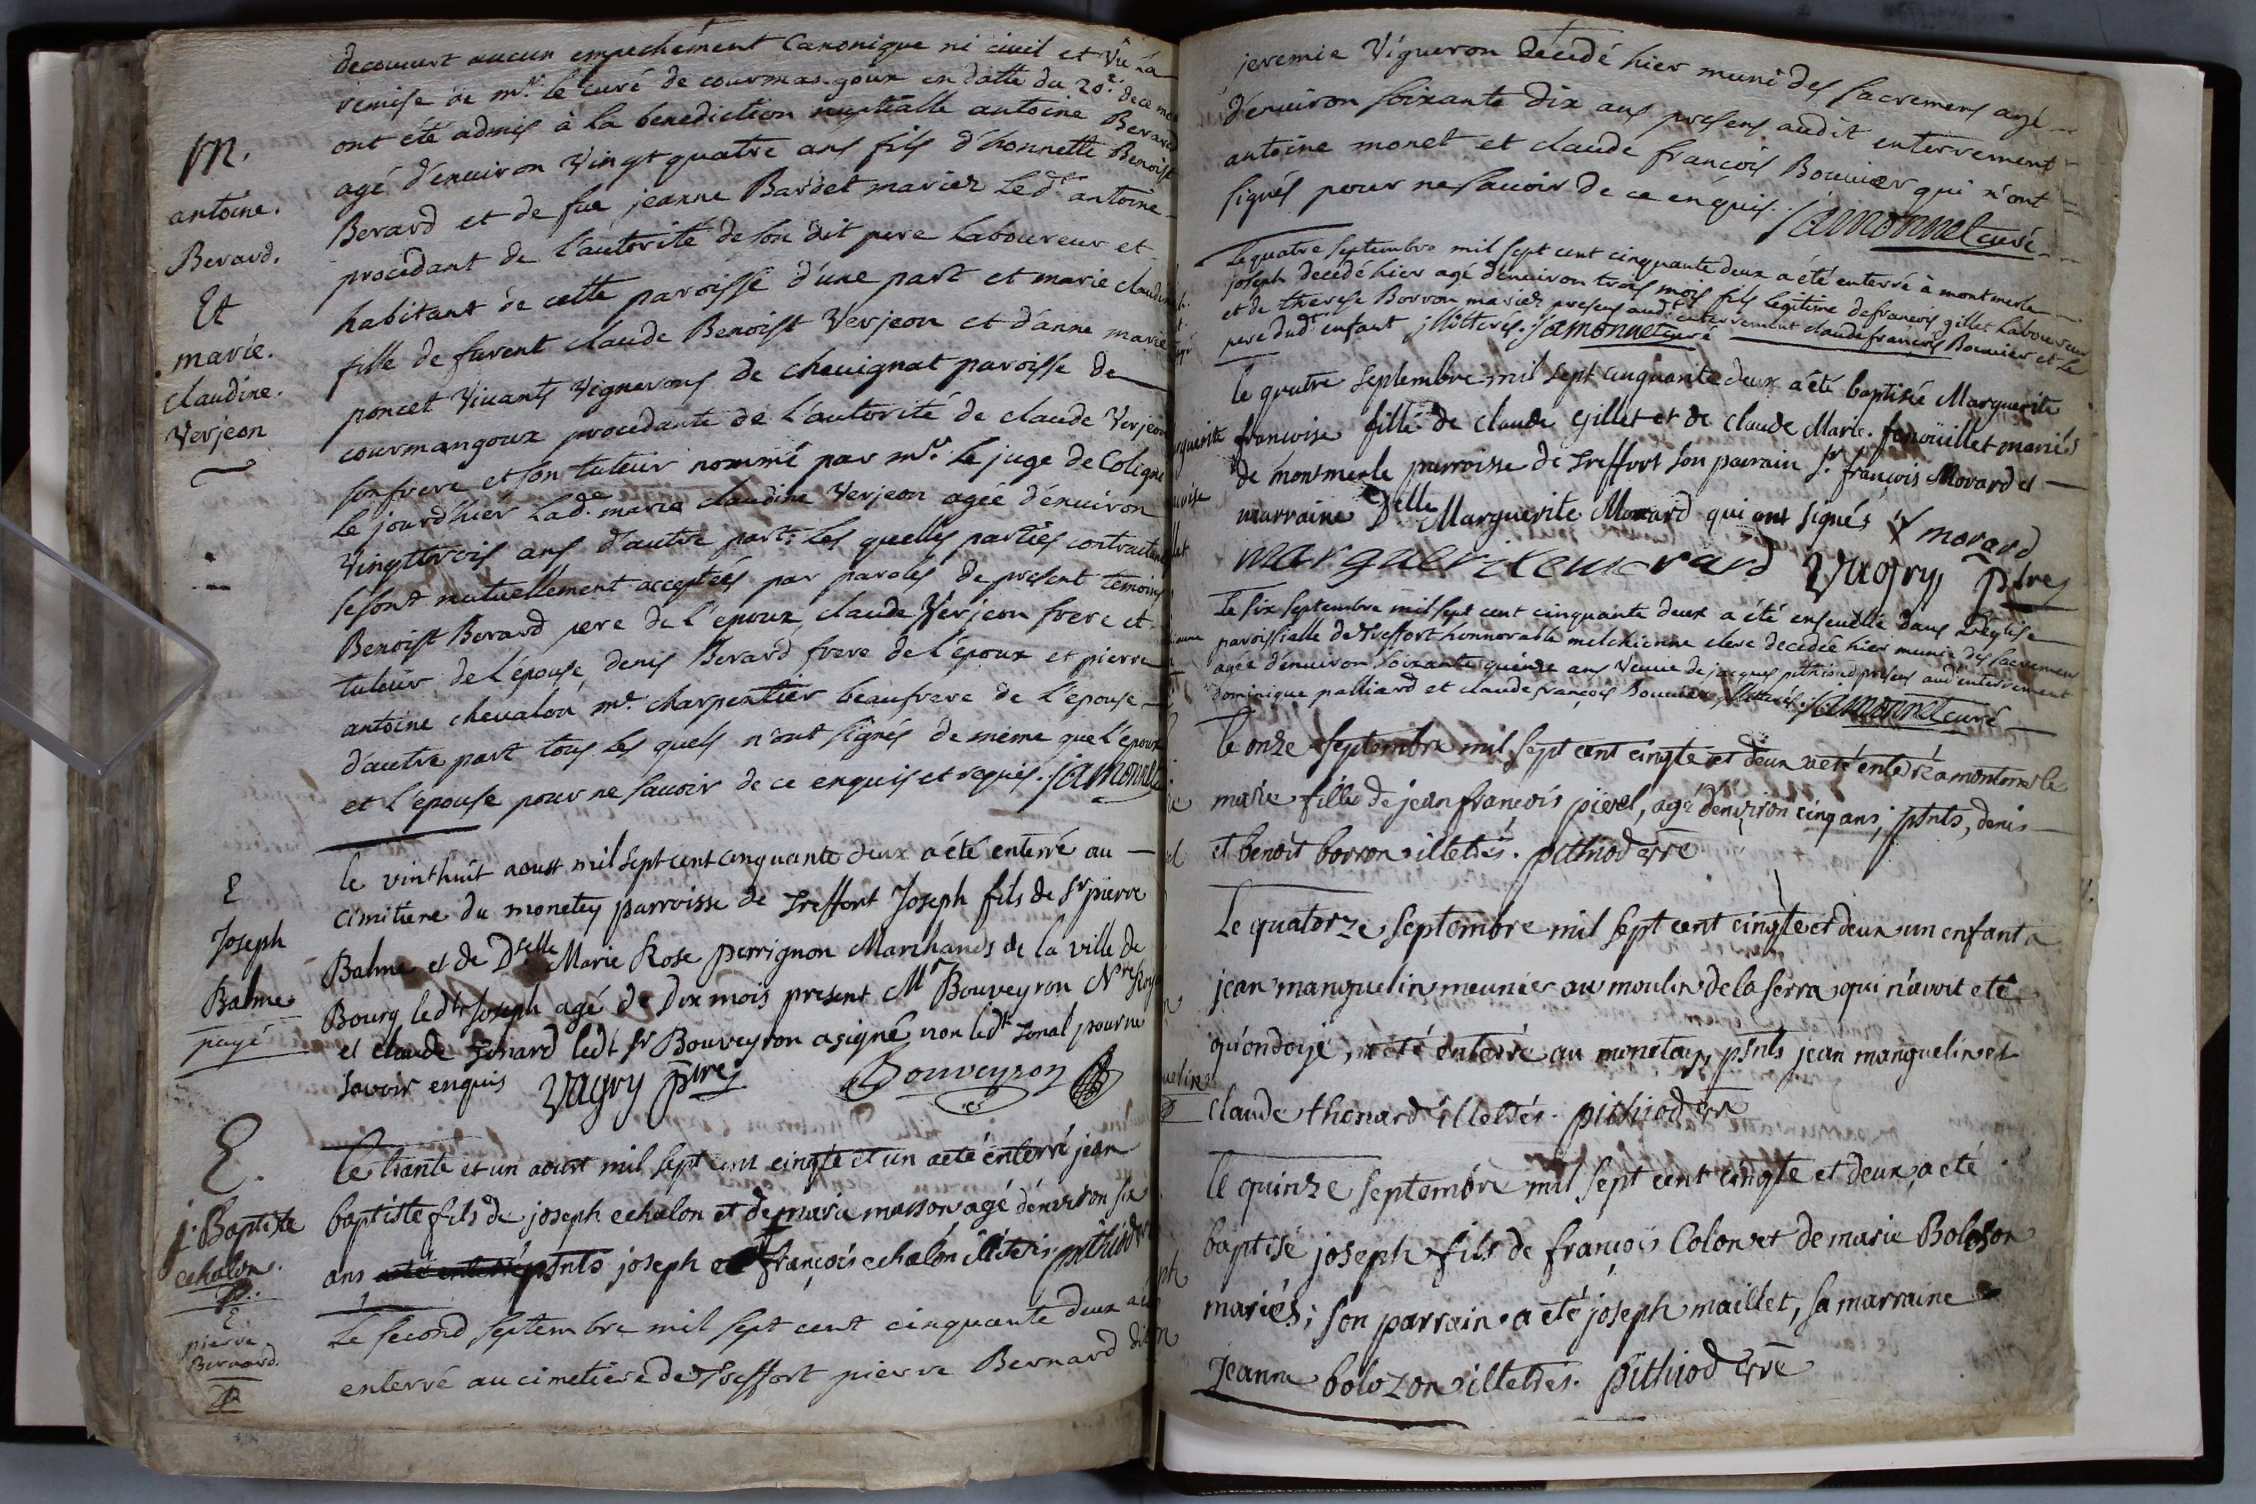 decouvert aucun empechement Canonique ni civil et Vû la
remise de mr. le curé de courmangoux en datte du 20e. de ce mois
ont été admis à la benediction nuptialle antoine Berard
agé d'environ Vingt quatre ans fils d'honnette Benoist
Berard et de fue jeanne Bardet mariez Led. antoine
procedant de l'autorité de son dit pere Laboureur et
habitant de cette paroisse d'une part et marie claudine
fille de furent claude Benoist Verjeon et d'anne marie
poncet Vivants Vignerons de chevignat paroisse de
courmangoux procedante de L'autorité de claude Verjeon
son frere et son tuteur nommé par mr. Le juge de Coligni
Le jourd'hier Lade. marie claudine Verjeon agée d'environ
Vingttrois ans d'autre part: Les quelles parties contractantes
se sont mutuellement acceptées par paroles de present temoins
Benoist Berard pere de l'epoux, claude Verjeon frere et
tuteur de L'épouse, denis Berard frere de L'époux et pierre
antoine chevalon me. charpentier beaufrere de L'epouse
d'autre part tous Les quels n'ont signés de même que L'epoux
et L'épouse pour ne savoir de ce enquis et requis. Jamonnet
M.
antoine.
Berard.
Et
marie.
claudine.
Verjeon
le vinthuit aoust mil sept cent cinquante deux a été enterré au
cimitiere du monetey parroisse de treffort Joseph fils de Sr pierre
Balme et de Dselle Marie Rose perrignon Marchands de la ville de
Bourg ledt Joseph agé de Dix mois present Mr Bouveyron Nre Royal
et claude tonard ledt Sr Bouveyron a signé non ledt tonal pour ne
savoir enquis Vagry ptre Bouveyron
E
Joseph
Balme
payé
le trante et un aoust mil sept cent cingte et un a eté énterré jean
baptiste fils de joseph echalon et de marie masson agé dénviron six
ans a eté enterré psnts joseph et françois echalon illiterés pithiod
E.
j. Baptiste
echalon.
Le second Septembre mil sept cent cinquante deux a eté
enterré au cimetiere de Treffort pierre Bernard dit
E
pierre
Bernard.
jeremie Vigneron décedé hier muni des sacremens agé
d'environ soixante dix ans presens audit enterrement
antoine monet et claude françois Bouvier qui n'ont
signés pour ne savoir de ce enquis. Jamonnet curé
Le quatre Septembre mil sept cent cinquante deux a été enterré à montmerle
joseph decedé hier agé d'environ trois mois fils legitime de francois gillet Laboureur
et de therese Borron mariez presens audt enterrement claude françois Bouvier et Le
pere dudt enfant illitterés. Jamonnet curé
le quatre Septembre mil sept cinquante deux a été baptisée Marguerite
francoise fille de claude Gillet et de claude Marie fenoüillet mariés
de montmerle parroisse de treffort son parrain Sr. françois Morard et
marraine Delle Marguerite Morard qui ont signés f morard
marguerite morard Vagry ptre
Le six Septembre mil sept cent cinquante deux a été ensevelie dans L'eglise
paroissialle de treffort honnorable melchienne clerc decedée hier munie des sacremens
agée d'environ soixante quinze ans Veuve de jacques pithiod presens aud enterrement
Dominique palliard et claude françois Bouvier illitterés. Jamonnet curé
le onze septembre mil sept cent cingte et deux a eté enterré a montmerle
marie fille de jean françois pierel, agé dénviron cinq ans, psnts, denis
et benoit borron illetrés. pithiod vre
Le quatorze septembre mil sept cent cingte et deux un enfant a
jean manguelin meunier au moulin de la serra qui n'avoit eté
qu'ondoyé, a été énterré au monetay, psnts jean manguelin et
claude thonard illetrés. pithiod vre
le quinze septembre mil sept cent cingte et deux, a eté
baptisé joseph fils de françois Colon et de marie Bolozon
mariés; son parrain a eté joseph maillet, sa marraine
jeanne bolozon illetrés. pithiod vre